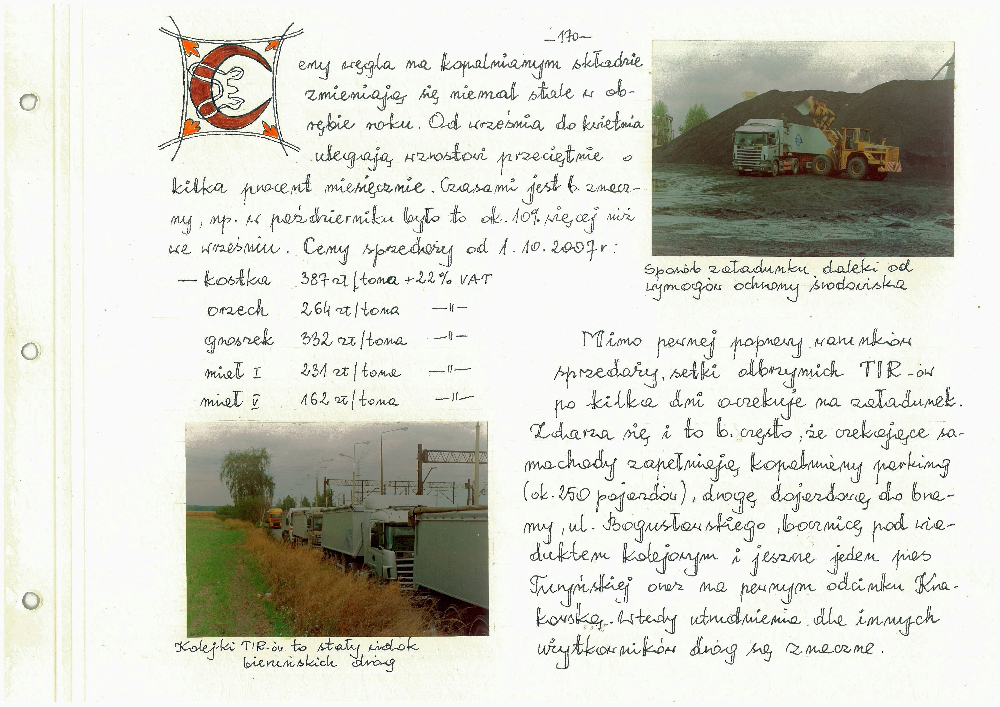 -170-
Ceny węgla na kopalnianym składzie
zmieniają się niemal stale w ob-
rębie roku. Od września do kwietnia
ulegają wzrostowi przeciętnie o
kilka procent miesięcznie. Czasami jest b. znacz-
ny, np. w październiku było to ok. 10% więcej niż
we wrześniu. Ceny sprzedaży od 1.10.2007r:
— kostka 387 zł/tona + 22% VAT
orzech 264 zł/tona —"—
groszek 332 zł/tona —"—
miał I 231 zł/tona —"—
miał V 162 zł/tona —"—
Kolejki TIR-ów to stały widok
bieruńskich dróg
Sposób załadunku daleki od
wymogów ochrony środowiska
Mimo pewnej poprawy warunków
sprzedaży, setki olbrzymich TIR-ów
po kilka dni oczekuje na załadunek.
Zdarza się i to b. często, że czekające sa-
mochody zapełniają kopalniany parking
(ok. 250 pojazdów), drogę dojazdową do bra-
my, ul. Bogusławskiego, bocznicę pod wia-
duktem kolejowym i jeszcze jeden pas
Turyńskiej oraz na pewnym odcinku Kra-
kowską. Wtedy utrudnienia dla innych
użytkowników dróg są znaczne.